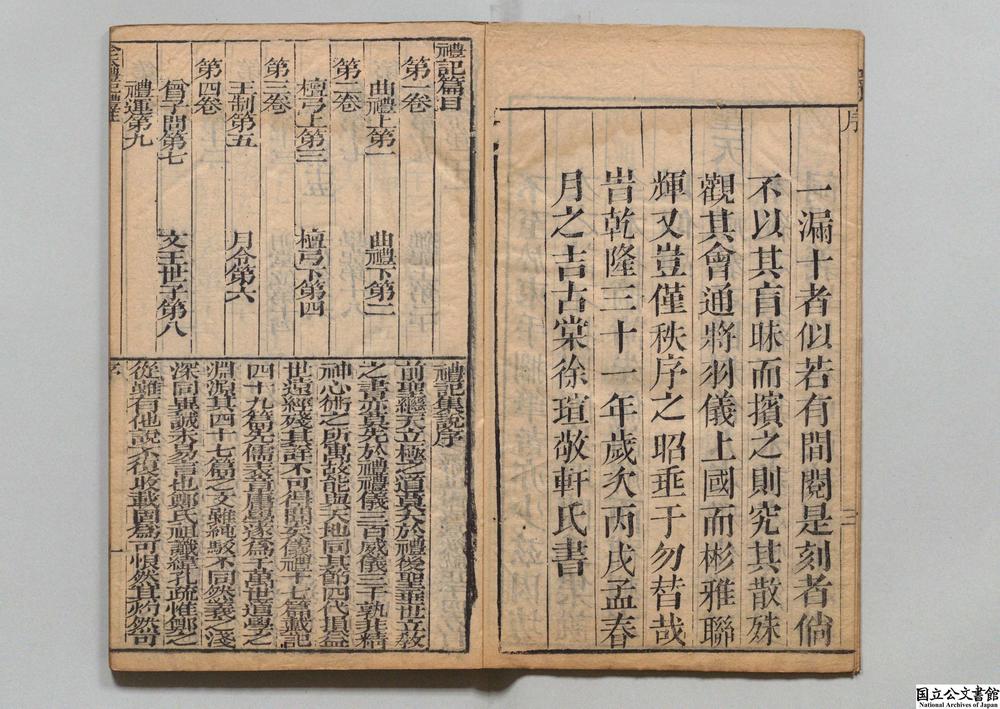 序
一漏十者似若有間閱是刻者倘
不以其盲昧而擯之則究其散殊
觀其會通將羽儀上國而彬雅聯
輝又豈僅秩序之昭垂于勿替哉
旹乾隆三十一年歲次丙戌孟春
月之吉古棠徐瑄敬軒氏書
三
禮記篇目
第一卷
曲禮上第一
曲禮下第二
第二卷
檀弓上第三
檀弓下第四
第三卷
王制第五
月令第六
第四卷
曾子問第七
文王世子第八
禮運第九
禮記集說序
前聖繼天立極之道莫大於禮後聖垂世立敎
之書亦莫先於禮禮儀三百威儀三千孰非精
神心術之所寓故能與天地同其節四代損益
世遠經殘其詳不可得聞矣儀禮十七篇戴記
四十九篇先儒表章庸學遂爲千萬世道學之
淵源其四十七篇之文雖純駁不同然義之淺
深同異誠未易言也鄭氏祖讖緯孔疏惟鄭之
從雖有他說不復收載固爲可恨然其灼然可
序
一
国立公文書館
National Archives of Japan